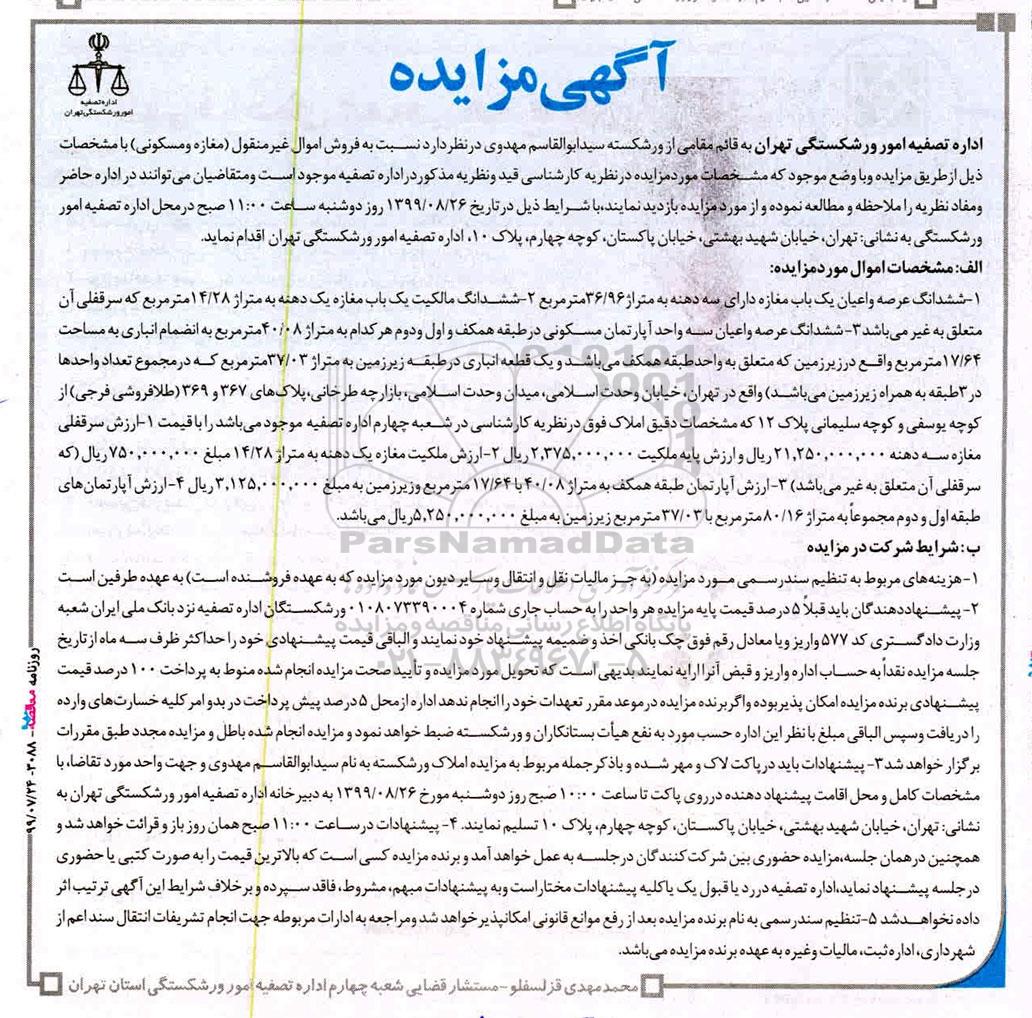 آگهی مزایده
اداره تصفیه
امور ورشکستگی تهران
اداره تصفیه امور ورشکستگی تهران به قائم مقامی از ورشکسته سیدابوالقاسم مهدوی درنظر دارد نسبت به فروش اموال غیرمنقول (مغازه ومسکونی) با مشخصات
ذیل ازطریق مزایده وبا وضع موجود که مشخصات موردمزایده درنظریه کارشناسی قید ونظریه مذکور دراداره تصفیه موجود است ومتقاضیان می توانند در اداره حاضر
ومفاد نظریه را ملاحظه و مطالعه نموده و از مورد مزایده بازدید نمایند،با شرایط ذیل درتاریخ ۱۳۹۹/۰۸/۲۶ روز دوشنبه ساعت ۱۱:۰۰ صبح درمحل اداره تصفیه امور
ورشکستگی به نشانی: تهران، خیابان شهید بهشتی، خیابان پاکستان، کوچه چهارم، پلاک ۱۰، اداره تصفیه امور ورشکستگی تهران اقدام نماید.
الف: مشخصات اموال موردمزایده:
۱-ششدانگ عرصه واعیان یک باب مغازه دارای سه دهنه به متراژ ۳۶/۹۶مترمربع ۲-ششدانگ مالکیت یک باب مغازه یک دهنه به متراژ ۱۴/۲۸مترمربع که سرقفلی آن
متعلق به غیر می باشد ۳-ششدانگ عرصه واعیان سه واحد آپارتمان مسکونی درطبقه همکف و اول ودوم هرکدام به متراژ ۴۰/۰۸مترمربع به انضمام انباری به مساحت
۱۷/۶۴مترمربع واقع درزیرزمین که متعلق به واحدطبقه همکف می باشد و یک قطعه انباری درطبقه زیرزمین به متراژ ۳۷/۰۳مترمربع که درمجموع تعداد واحدها
در ۳طبقه به همراه زیرزمین می باشد) واقع در تهران، خیابان وحدت اسلامی، میدان وحدت اسلامی، بازارچه طرخانی، پلاک های ۳۶۷ و ۳۶۹ (طلافروشی فرجی) از
کوچه یوسفی و کوچه سلیمانی پلاک ۱۲ که مشخصات دقیق املاک فوق درنظریه کارشناسی در شعبه چهارم اداره تصفیه موجود می باشد را با قیمت ۱-ارزش سرقفلی
مغازه سه دهنه ۲۱,۲۵۰,۰۰۰,۰۰۰ ریال و ارزش پایه ملکیت ۲,۳۷۵,۰۰۰,۰۰۰ ریال ۲-ارزش ملکیت مغازه یک دهنه به متراژ ۱۴/۲۸ مبلغ ۷۵۰,۰۰۰,۰۰۰ ریال (که
سرقفلی آن متعلق به غیر می باشد) ۳-ارزش آپارتمان طبقه همکف به متراژ ۴۰/۰۸ با ۱۷/۶۴ مترمربع وزیرزمین به مبلغ ۳,۱۲۵,۰۰۰,۰۰۰ ریال ۴-ارزش آپارتمان های
طبقه اول و دوم مجموعاً به متراژ ۸۰/۱۶ مترمربع با ۳۷/۰۳مترمربع زیرزمین به مبلغ ۵,۲۵۰,۰۰۰,۰۰۰ریال می باشد.
ParsNamadData
ب: شرایط شرکت در مزایده
۱-هزینه های مربوط به تنظیم سندرسمی مورد مزایده (به جز مالیات نقل و انتقال وسایر دیون مورد مزایده که به عهده فروشنده است) به عهده طرفین است
۲- پیشنهاددهندگان باید قبلاً ۵ درصد قیمت پایه مزایده هر واحد را به حساب جاری شماره ۰۱۰۸۰۷۳۳۹۰۰۰۴ ورشکستگان اداره تصفیه نزد بانک ملی ایران شعبه
پایگاه اطلاع رسانی مناقصه و مزایده
وزارت دادگستری کد ۵۷۷ واریز ویا معادل رقم فوق چک بانکی اخذ و ضمیمه پیشنهاد خود نمایند و الباقی قیمت پیشنهادی خود را حداکثر ظرف سه ماه از تاریخ
۰۲۱-۸۸۳۴۹۶۷۰-۵
جلسه مزایده نقداً به حساب اداره واریز و قبض آنرا ارایه نمایند بدیهی است که تحویل مورد مزایده و تأیید صحت مزایده انجام شده منوط به پرداخت ۱۰۰ درصد قیمت
پیشنهادی برنده مزایده امکان پذیر بوده واگر برنده مزایده در موعد مقرر تعهدات خود را انجام ندهد اداره ازمحل ۵ درصد پیش پرداخت در بدو امر کلیه خسارت های وارده
را دریافت وسپس الباقی مبلغ با نظر این اداره حسب مورد به نفع هیأت بستانکاران و ورشکسته ضبط خواهد نمود و مزایده انجام شده باطل و مزایده مجدد طبق مقررات
برگزار خواهد شد ۳- پیشنهادات باید درپاکت لاک و مهر شده و باذکر جمله مربوط به مزایده املاک ورشکسته به نام سیدابوالقاسم مهدوی و جهت واحد مورد تقاضا، با
مشخصات کامل و محل اقامت پیشنهاد دهنده درروی پاکت تا ساعت ۱۰:۰۰ صبح روز دوشنبه مورخ ۱۳۹۹/۰۸/۲۶ به دبیرخانه اداره تصفیه امور ورشکستگی تهران به
نشانی: تهران، خیابان شهید بهشتی، خیابان پاکستان، کوچه چهارم، پلاک ۱۰ تسلیم نمایند. ۴- پیشنهادات درساعت ۱۱:۰۰ صبح همان روز باز و قرائت خواهد شد و
همچنین درهمان جلسه،مزایده حضوری بین شرکت کنندگان درجلسه به عمل خواهد آمد و برنده مزایده کسی است که بالاترین قیمت را به صورت کتبی یا حضوری
درجلسه پیشنهاد نماید،اداره تصفیه دررد یا قبول یک یا کلیه پیشنهادات مختار است وبه پیشنهادات مبهم، مشروط، فاقد سپرده و برخلاف شرایط این آگهی ترتیب اثر
داده نخواهدشد ۵-تنظیم سندرسمی به نام برنده مزایده بعد از رفع موانع قانونی امکانپذیر خواهد شد ومراجعه به ادارات مربوطه جهت انجام تشریفات انتقال سند اعم از
شهرداری، اداره ثبت، مالیات وغیره به عهده برنده مزایده می باشد.
محمدمهدی قزلسفلو-مستشار قضایی شعبه چهارم اداره تصفیه امور ورشکستگی استان تهران
روزنامه مناقصه مزایده - ۳۰۸۸ - ۹۹/۰۷/۲۴